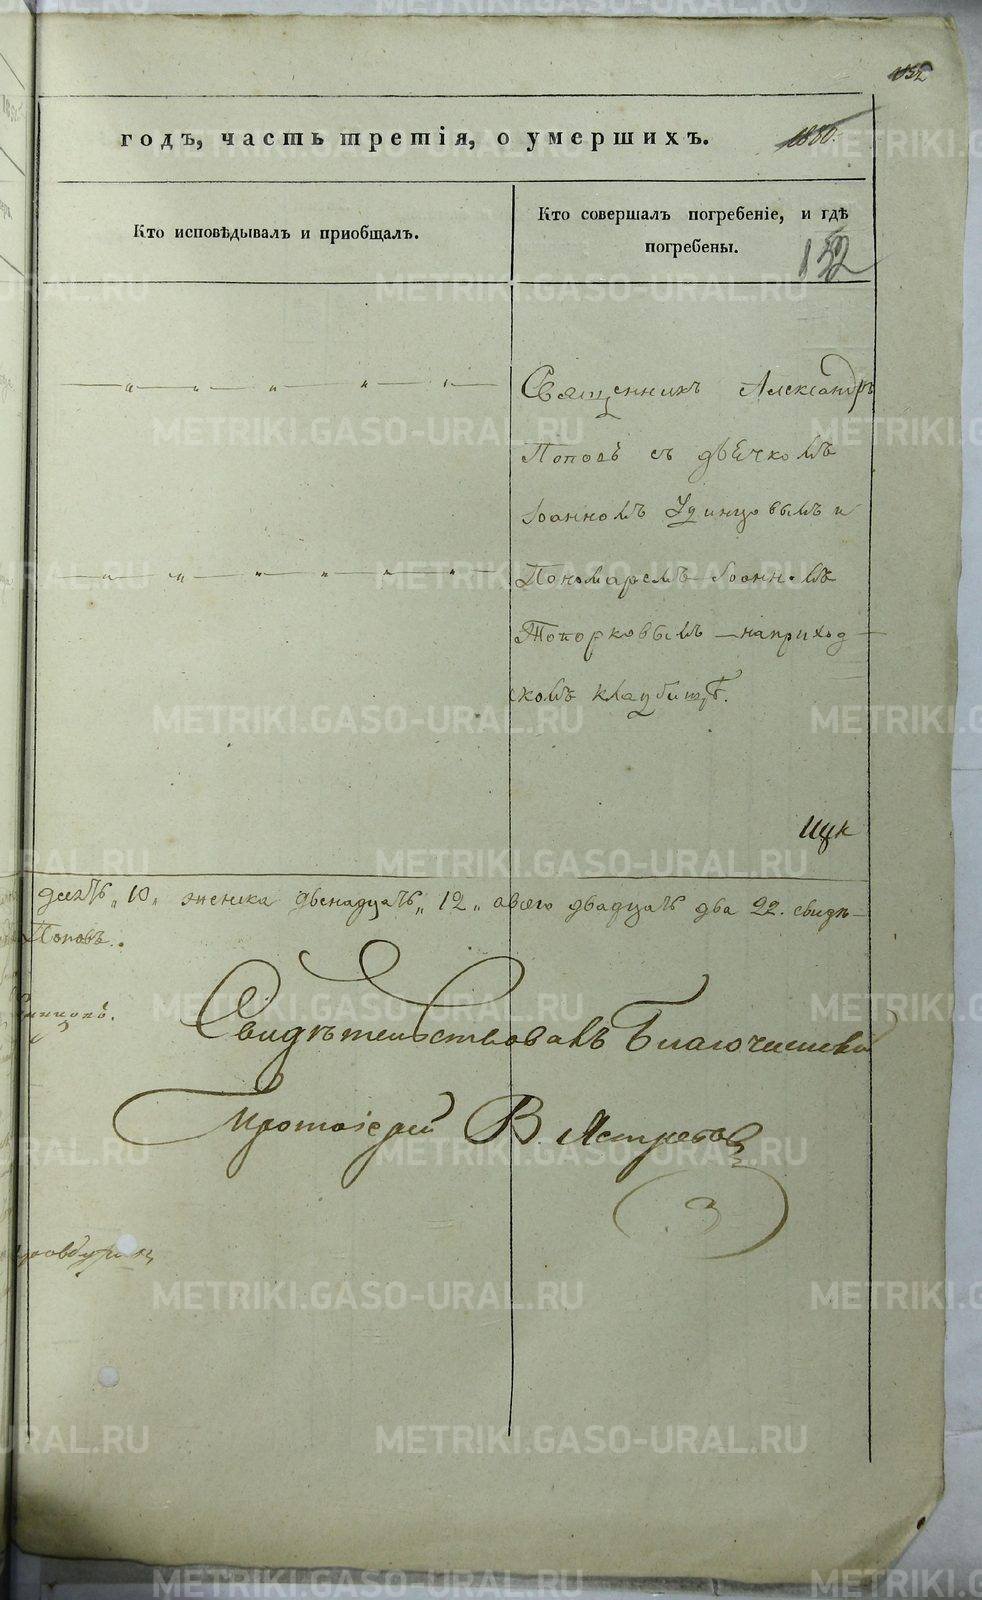 152
годъ, часть третія, о умершихъ.
1880.
Кто исповѣдывалъ и пріобщалъ.
Кто совершалъ погребеніе, и гдѣ
погребены.
152
Священникъ Александръ
Поповъ съ дьячкомъ
Іоанномъ Удинцовымъ и
Пономаремъ Іоанномъ
Топорковымъ на приход-
скомъ кладбищѣ.
десять „10„ женска двенадцать „12„ а всего двадцать два 22. свидѣ-
Поповъ.
Свидѣтельствовалъ Благочинный
Протоіерей В. Ястребовъ
METRIKI.GASO-URAL.RU